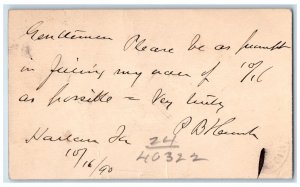 Gentlemen Please be as prompt
in filling my order of 10/16
as possible = Very truly
Harlan Ia P B
10/16/90
24
40322